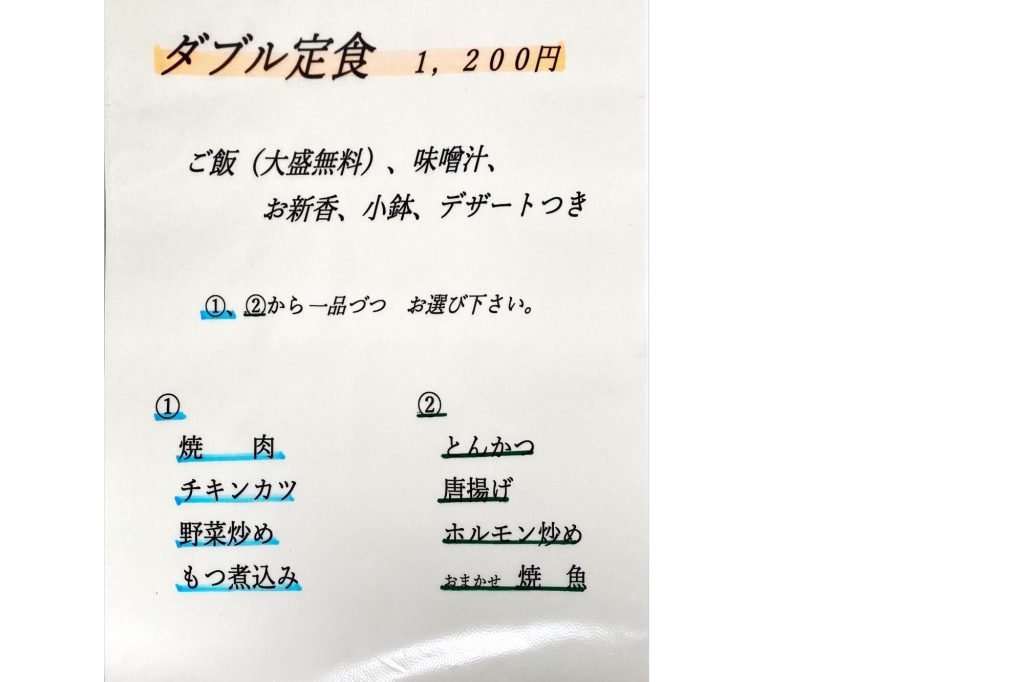 ダブル定食　1，200円
ご飯（大盛無料）、味噌汁、
お新香、小鉢、デザートつき
①、②から一品づつ　お選び下さい。
①
焼　　肉
チキンカツ
野菜炒め
もつ煮込み
②
とんかつ
唐揚げ
ホルモン炒め
おまかせ　焼　魚